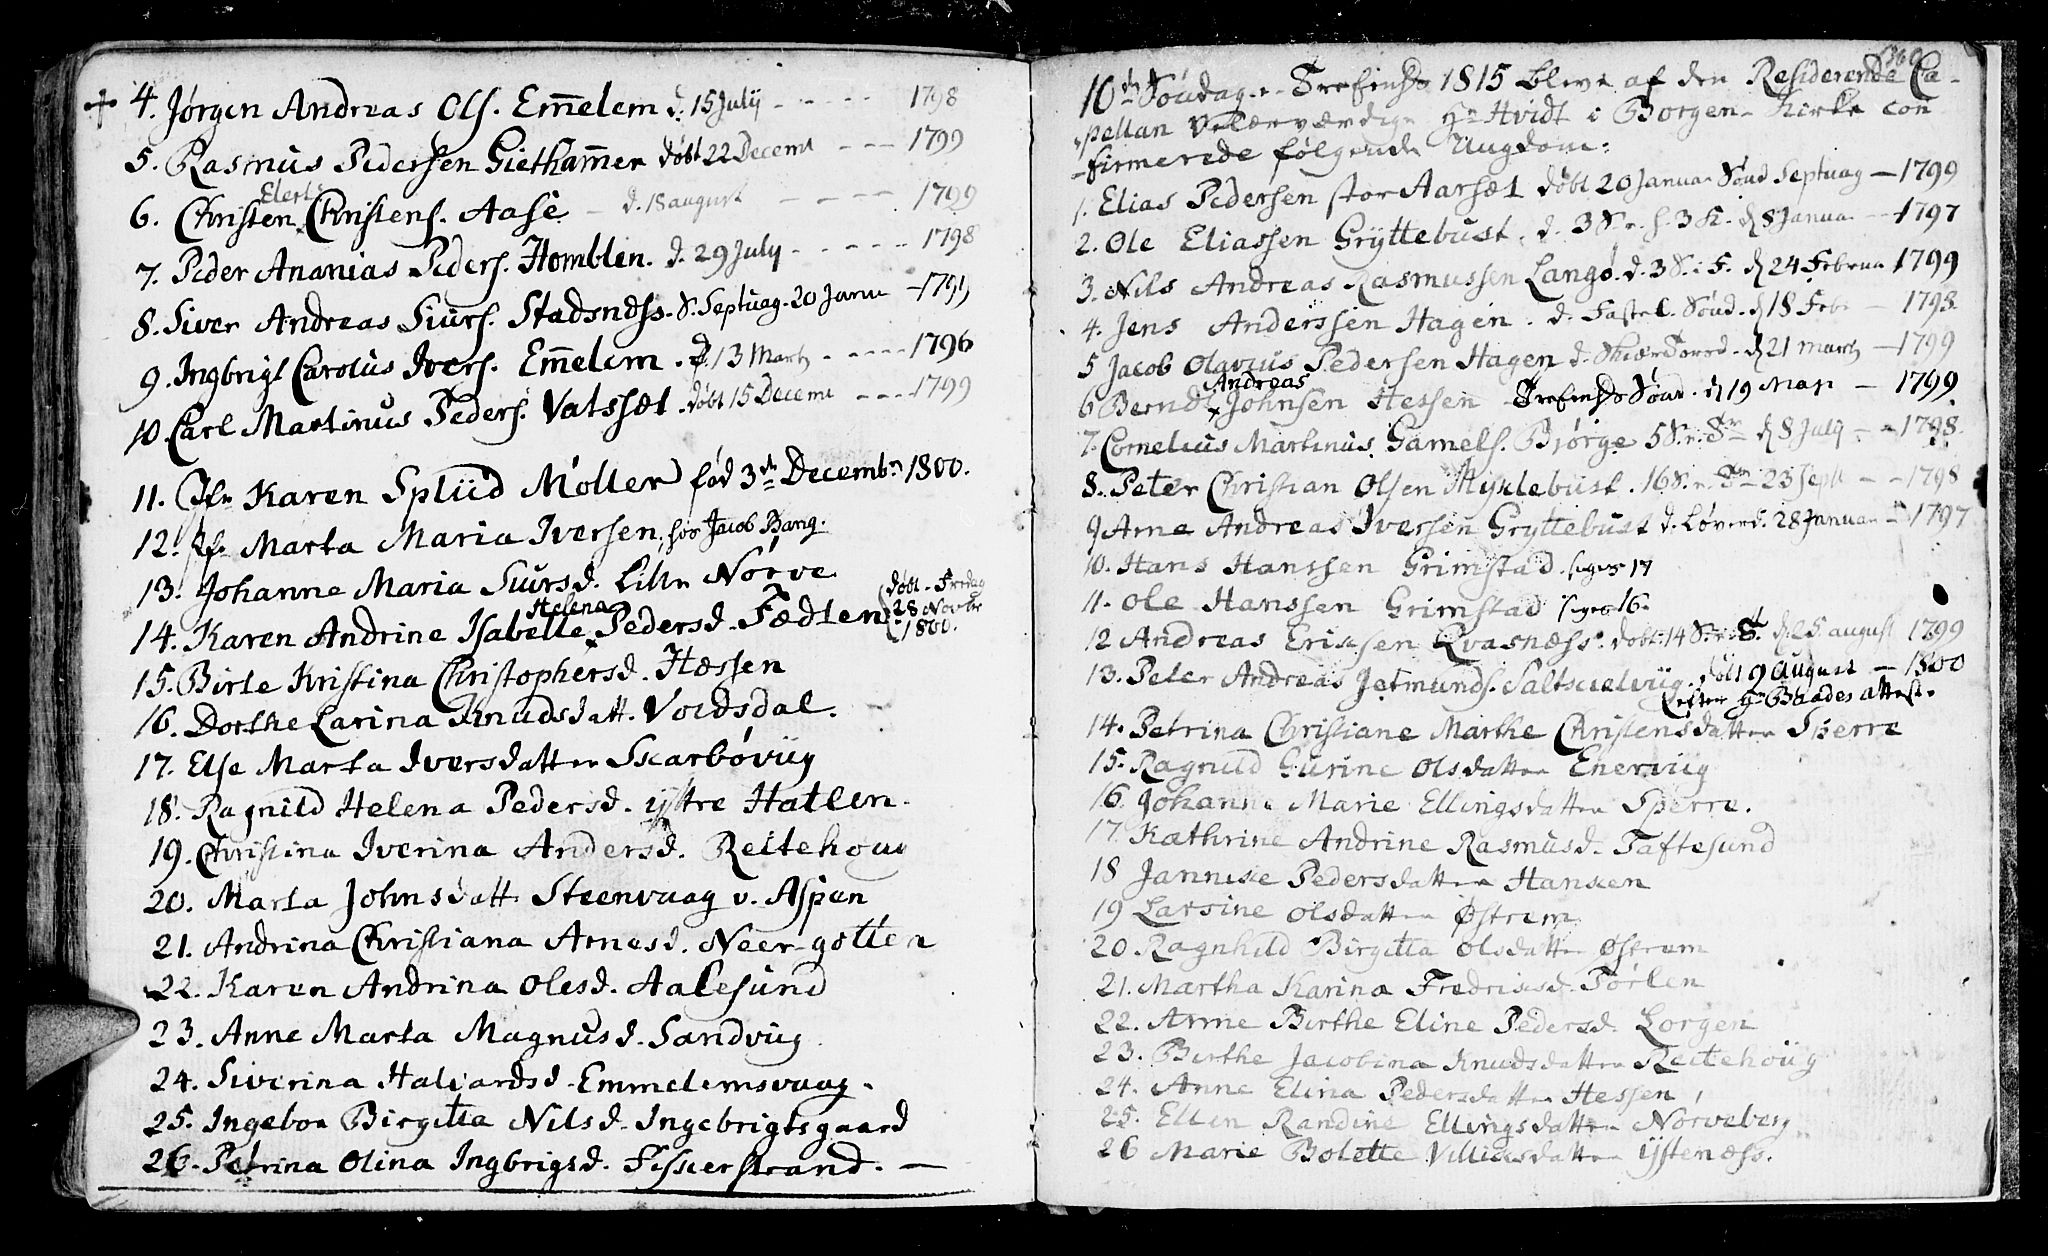 + 4. Jørgen Andreas Ols. Em̅elem d. 15 July - - - - - 1798
5. Rasmus Pedersen Gjetham̅er døbt 22 Decemb - - - 1799
Elert
6. Christen Christens. Aase - d. 18 august - - - - 1799
7. Peder Ananias Peders. Homblen. d. 29 July - - - - - 1798
8. Siver Andreas Siurs. Stadsnæss. S. Septuag. 20 Janu - 1799
9. Ingbrigt Carolus Ivers. Em̅elem. d. 13 Marty - - - - 1796
10. Carl Martinus Peders. Vatssæt. døbt 15 Decemb - - - 1799
11. Jfr Karen Splüd Møller fød 3de Decembr 1800.
12. Jfr Marta Maria Iversen, hos Jacob Bang.
13. Johanne Maria Siursd. Lille Nørve
Helena
14. Karen Andrine Isabelle Pedersd. Fædlen
døbt Fredag
28 Novbr
1800.
15. Birte Kristina Christophersd. Hæssen
16. Dorthe Larina Knudsdatt. Voldsdal.
17. Else Marta Iversdatter Skarbøviig
18. Ragnild Helena Pedersd. ijttre Hatlen.
19. Christina Iverina Andersd. Reitehoug
20. Marta Johnsdatt Steenvaag v. Aspen
21. Andrina Christiana Arnesd. Neer-gotten
22. Karen Andrina Olesd. Aalesund
23. Anne Marta Magnusd. Sandviig
24. Siverina Halvardsd. Emmelemsvaag.
25. Ingebor Birgitta Nilsd. Ingebrigtsgaard
26. Petrina Olina Ingbrigsd. Fiskerstrand. -
360
10de Søndag e. Trefoinsh 1815 bleve af den Residerende Ca-
pellan Velærværdige Hr Hvidt i Borgen- Kirke con
-firmerede følgende Ungdom:
1. Elias Pedersen stor Aarsæt døbt 20 Januar Sønd Septuag - 1799
2. Ole Eliassen Gryttebust. d. 3 S. e. h. 3 K. d 8 Janua - 1797
3. Nils Andreas Rasmussen Langø. d. 3 S. i F. d 24 Februa 1799
4. Jens Anderssen Hagen. d. Fastel. Sønd. d 18 Febr - 1798
5 Jacob Olavius Pedersen Hagen d. Skiærtorsd. d 21 Marty - 1799
Andreas
6 Berndt Johnsen Hessen Trefoinsh Sønd. d 19 Maji - 1799
7. Cornelius Martinus Gamels. Bjørge 5 S. e. Tr d 8 July - 1798
8. Peter Christian Olsen Myklebust. 16 S. e. Tr 23 Sept - - 1798
9 Arne Andreas Iversen Gryttebust d. Løverd. 28 Januar - 1797
10. Hans Hanssen Grimstad. 17
11. Ole Hanssen Grimstad 16.
12 Andreas Eriksen Kvasnæss. døbt 14 S. e. T. d 25 august 1799
13. Peter Andreas Jetmunds. Saltkielviig. døbt 9 august - 1800
efter Hr Baades attest.
14. Petrina Christiane Marthe Christensdatter Sperre
15. Ragnild Gurine Olsdatter Enerviig
16 Johanne Marie Ellingsdatter Sperre.
17. Kathrine Andrine Rasmusd. Taftesund
18 Jannike Pedersdatter Hanken
19 Larsine Olsdatter Østrem
20 Ragnhild Birgitta Olsdatter Østrem
21. Martha Karina Fredriksd. Tørlen
22. Anne Birthe Eline Pedersd. Lorgen
23. Birthe Jacobina Knudsdatter Reitehoug
24. Anne Elina Pedersdatter Hessen
25. Ellen Randine Ellingsdatter Nørveberg
26 Marie Bolette Villiksdatter ijstenæss.